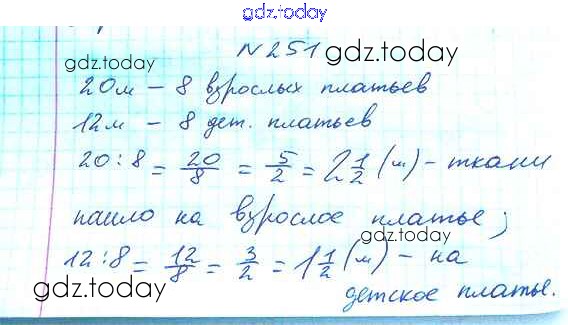 gdz.today
N 251 gdz.today
gdz.today
20м – 8 взрослых платьев
12м – 8 дет. платьев
20 : 8 = 20/8 = 5/2 = 2 1/2 (м) – ткани
пошло на взрослое платье;
gdz.today
12 : 8 = 12/8 = 3/2 = 1 1/2 (м) – на
gdz.today
детское платье.